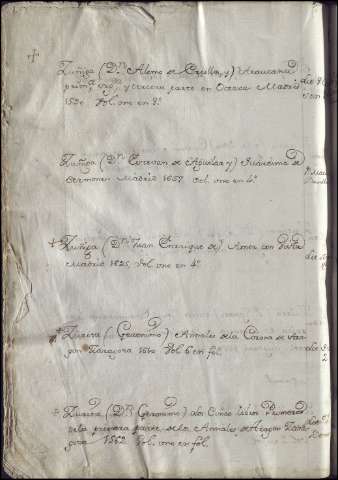 Zuñiga (Dn. Alonso de Ercilla, y) Araucana
primª, segª, y tercera parte en Octava Madrid
1590. Vol. one en 8º.
Zuñiga (Dn. Estevan de Aguilar y) de
Sermones Madrid 1657. Vol. one en 4º.
Zuñiga (Dn. Juan Enriquez de) Amor con Vista
Madrid 1625. Vol. one en 4º.
Zurita (Geronimo) Annales de la Corona de Ara-
gon Zaragoza 1610 Vol. 6 en fol.
Zurita (Dn. Geronimo) los Cinco libros Primeros
de la primera parte de los Annales de Aragon Zara-
goza 1562. Vol. one en fol.